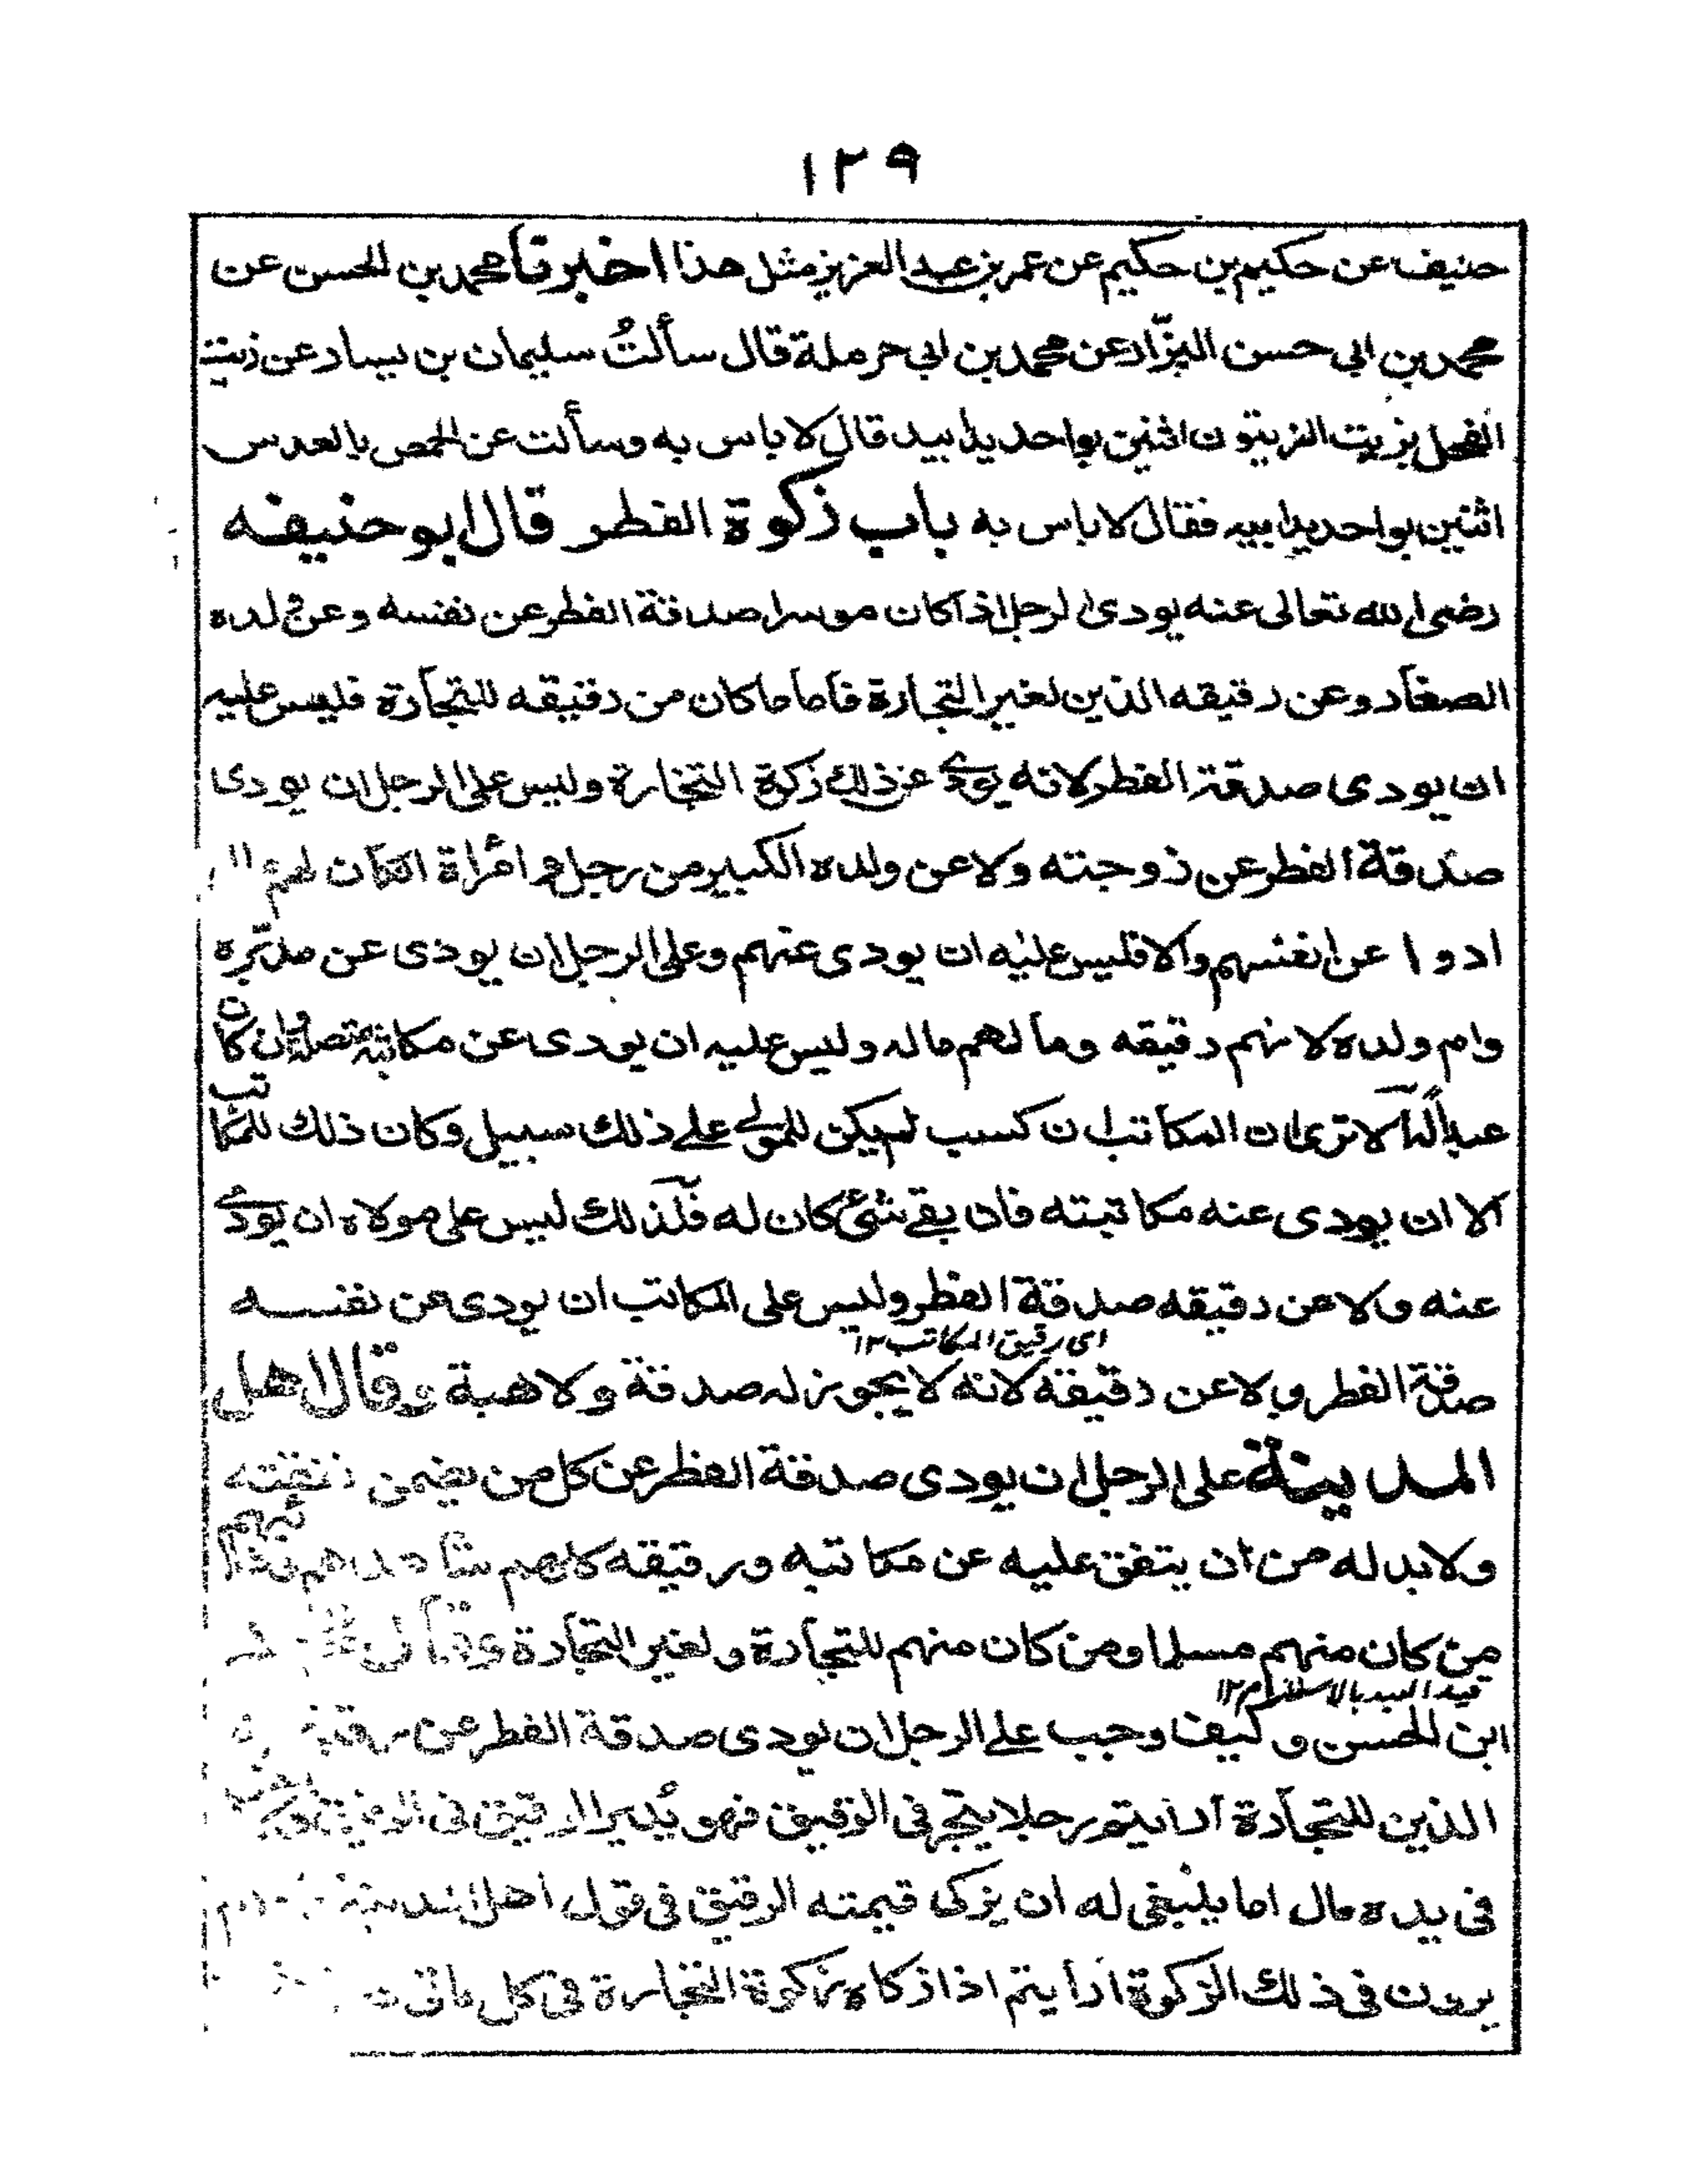 ١٢٩
حنيف عن حكيم بن حكيم عن عمر بن عبد العزيز مثل هذا اخبرنا محمد بن الحسن عن
محمد بن ابى حسن البزّار عن محمد بن ابى حرملة قال سألتُ سليمان بن يسار عن زيت
الفجل بزيت الزيتون اثنين بواحد يدا بيد قال لا باس به وسألت عن الحمص بالعدس
اثنين بواحد يدا بيد فقال لا باس به باب زكوة الفطر قال ابو حنيفه
رضى الله تعالى عنه يودى الرجل اذا كان موسرا صدقة الفطر عن نفسه وعن ولده
الصغار وعن رقيقه الذين لغير التجارة فاما ما كان من رقيقه للتجارة فليس عليه
ان يودى صدقة الفطر لانه يودى عن ذلك زكوة التجارة وليس على الرجل ان يودى
صدقة الفطر عن زوجته ولا عن ولده الكبير من رجل او امرأة ان كان لهم
ادوا عن انفسهم والا فليس عليه ان يودى عنهم وعلى الرجل ان يودى عن مدبّره
وام ولده لانهم رقيقه وما لهم ماله وليس عليه ان يودى عن مكاتبه وان كان
عبدا له الا ترى ان المكاتب ان كسب لم يكن للمولى على ذلك سبيل وكان ذلك للمكاتب
الا ان يودى عنه مكاتبته فان بقے شئ كان له فلذلك ليس على مولاه ان يودى
عنه ولا عن رقيقه صدقة الفطر وليس على المكاتب ان يودى عن نفسه
اى رقيق المكاتب ١٢
صدقة الفطر ولا عن رقيقه لانه لا يجوز له صدقة ولا هبة وقال اهل
المدينة على الرجل ان يودى صدقة الفطر عن كل من يضمن نفقته
ولا بد له من ان ينفق عليه عن مكاتبه ورقيقه كلهم
من كان منهم مسلما ومن كان منهم للتجارة ولغير التجارة
قيد العبد بالاسلام ١٢
ابن الحسن وكيف وجب على الرجل ان يودى صدقة الفطر عن رقيقه
الذين للتجارة ارايتم رجلا يتجر فى الرقيق فهو يُدير الرقيق فى
فى يده مال اما ينبغى له ان يزكى قيمته الرقيق فى قول اهل المدينة
يرون فى ذلك الزكوة ارأيتم اذا زكاه زكوة التجارة فى كل